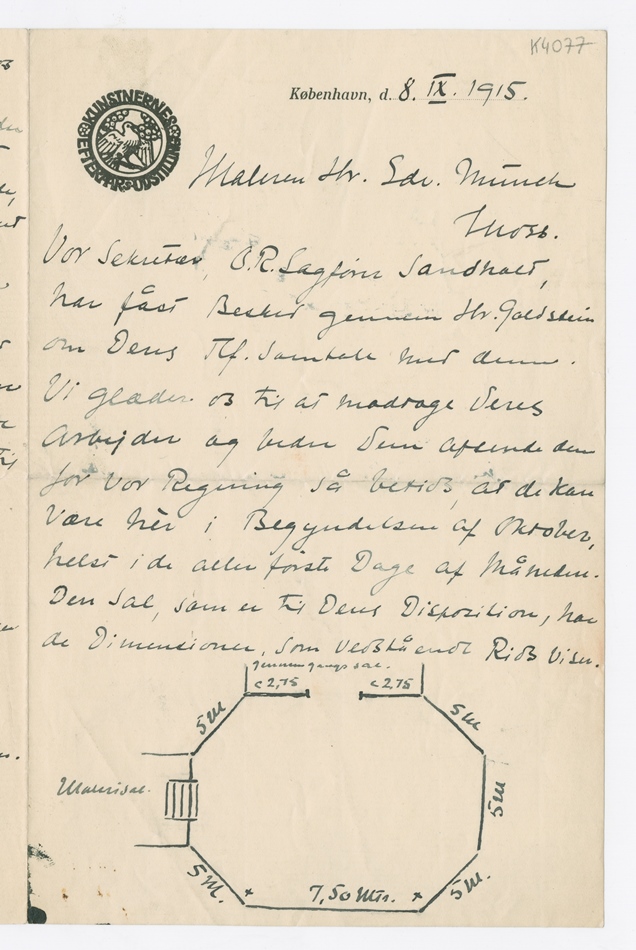 K4077
KUNSTNERNES EFTERAARSUDSTILLING
København, d. 8. IX. 1915.
Maleren Hr. Edv. Munch
Moss.
Vor Sekretær, O.R. Sandholt,
har fåst Besked gennem Hr. Goldstein
om Deres Tlf. Samtale med denne.
Vi glæder os til at modtage Deres
Arbejder og beder Dem afsende dem
for vor Regning så betids, at de kan
være hèr i Begyndelsen af Oktober,
helst i de aller første Dage af Måneden.
Den Sal, som er til Deres Disposition, har
de Dimensioner, som vedstående Rids viser.
gennemgangssal.
c 2,75 c 2,75
5 M 5 M
Malerisal. 5 M
5 M. 7,50 Mtr. 5 M.